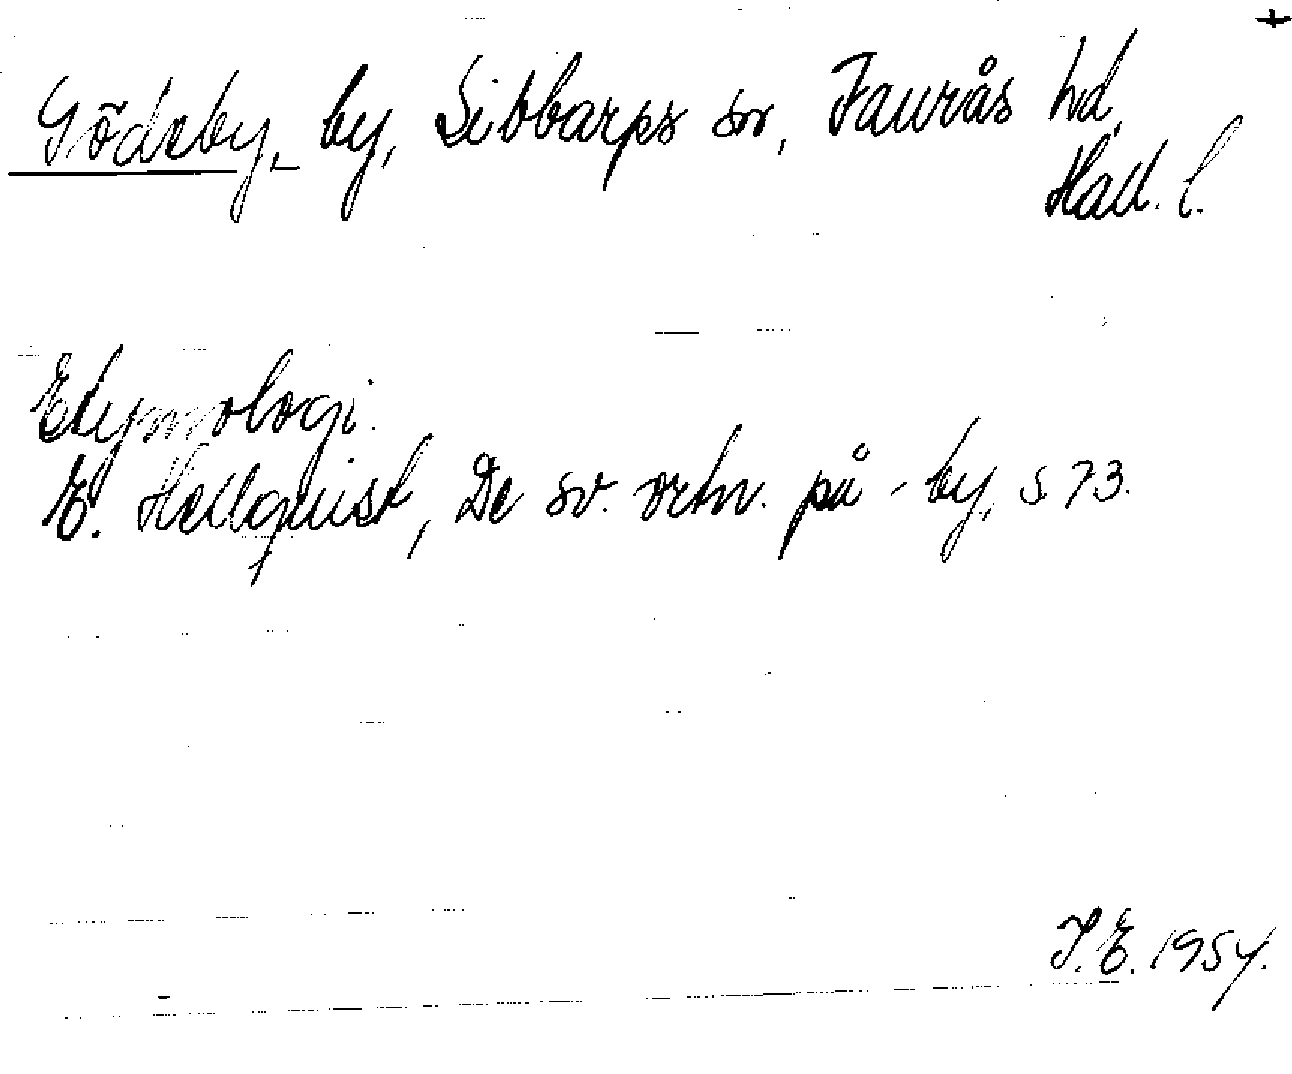 +
Gödeby, by, Sibbarps sn, Faurås hd,
Hall. l.
Etymologi.
E. Hellquist, De sv. ortn. på -by, s 73.
I.E. 1954.